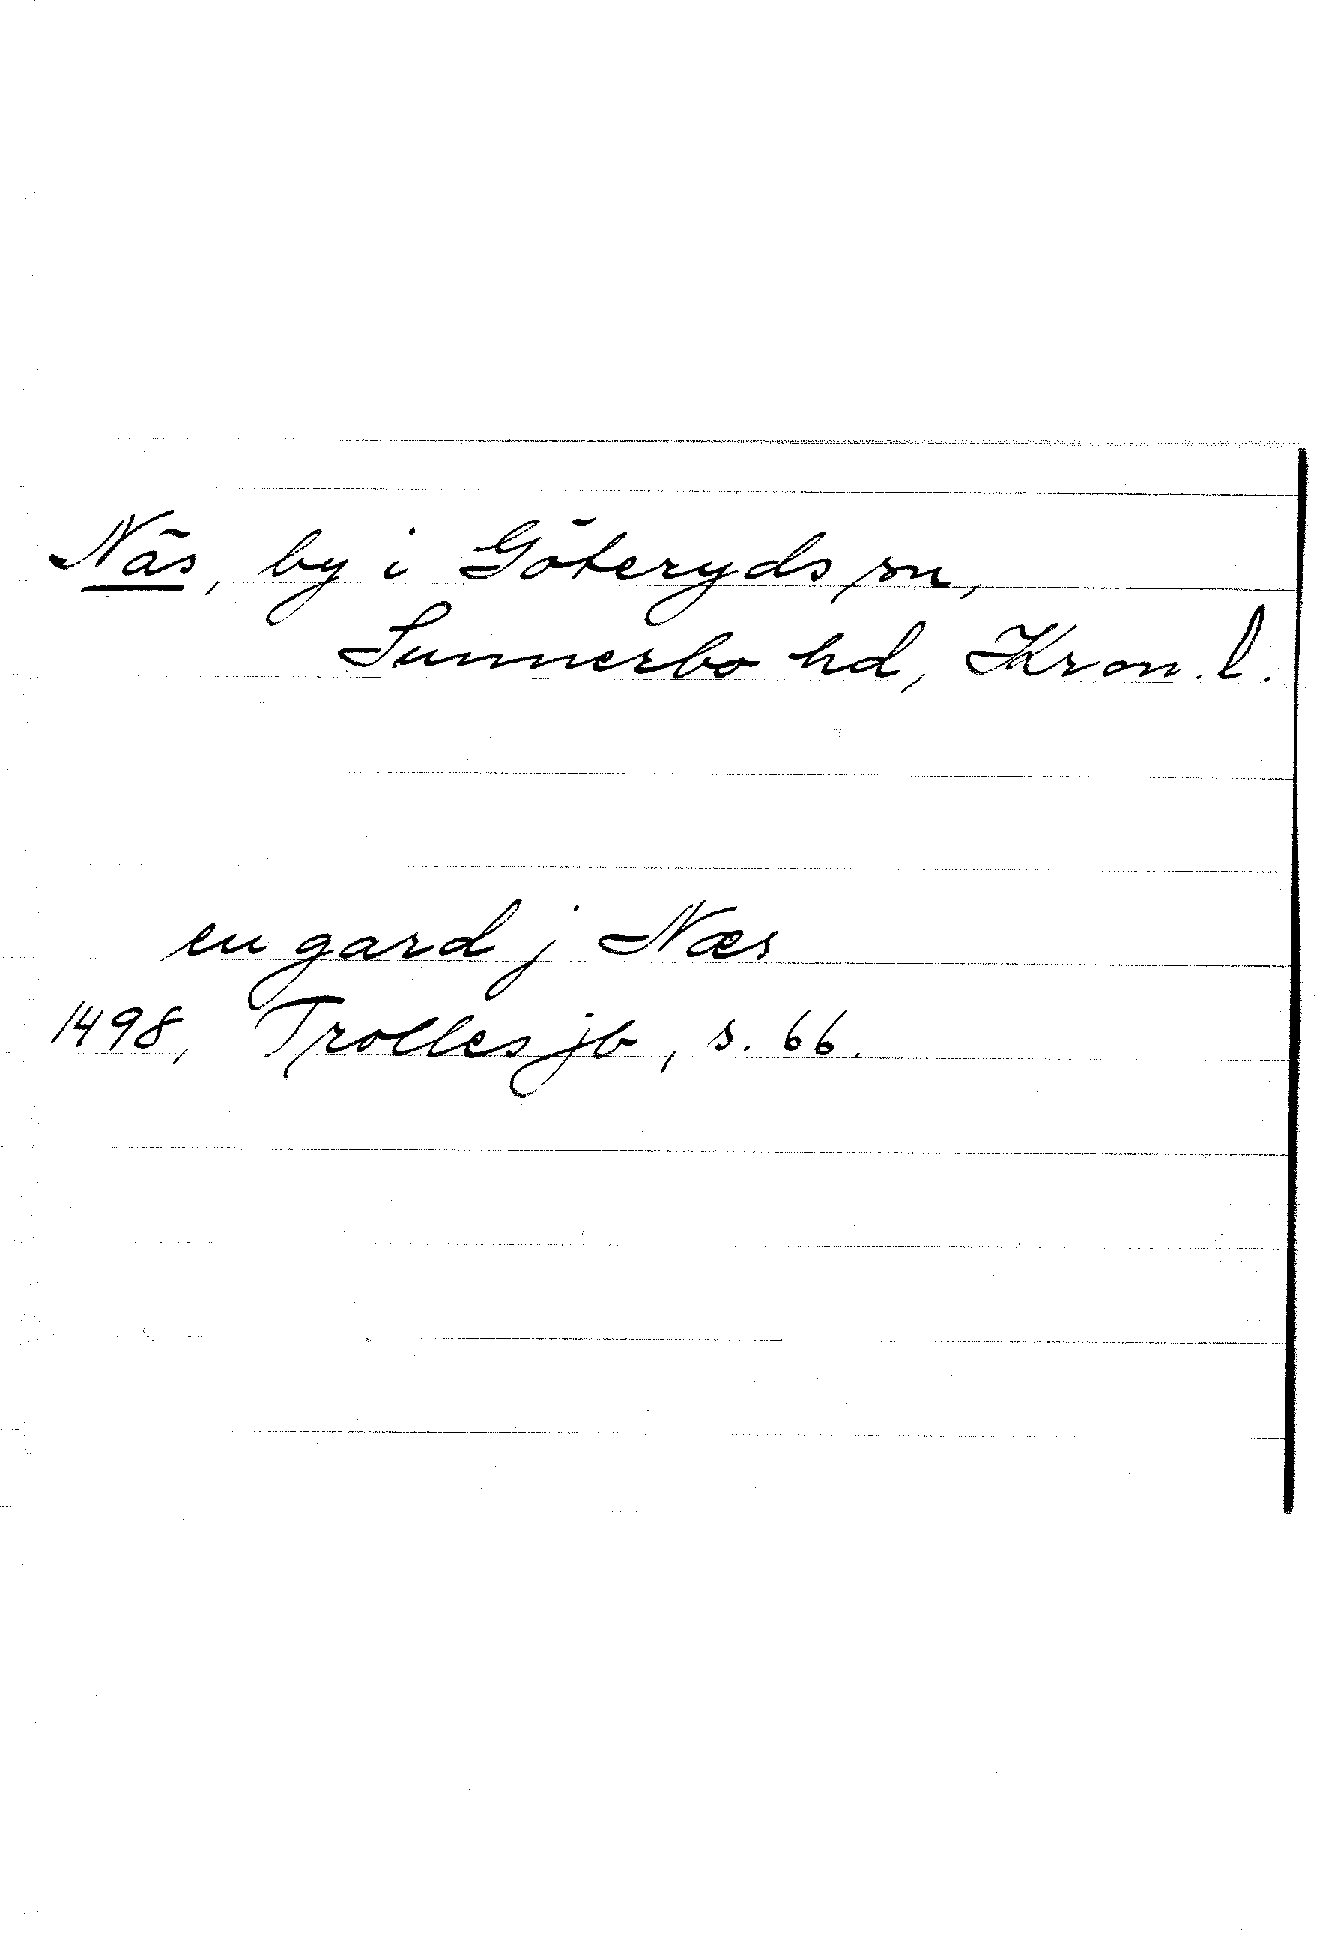 Näs, by i Göteryds sn,
Sunnerbo hd, Kron. l.
en gard j Næs
1498, Trolles jb, s. 66.